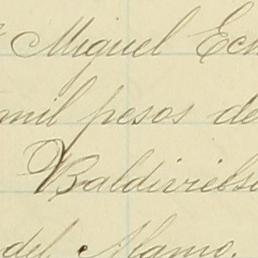 Miguel Ech
mil pesos de
Baldivielso
del Alamo.